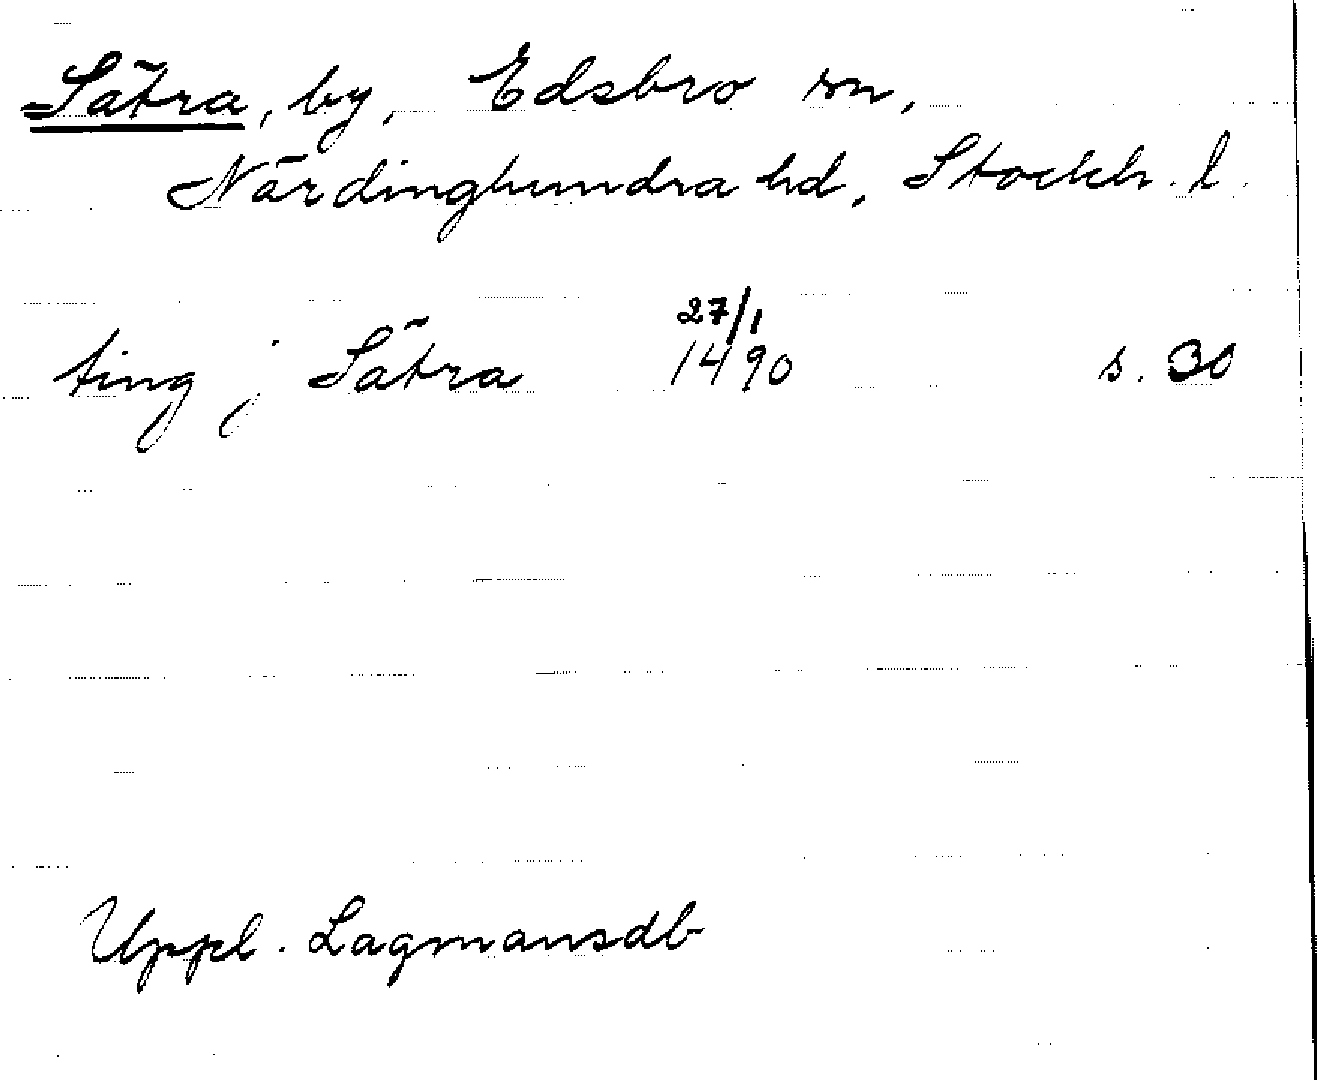 Sätra, by, Edsbro sn,
Närdinghundra hd, Stockh. l.
27/1
ting j Sätra 1490 s. 30
Uppl. Lagmansdb